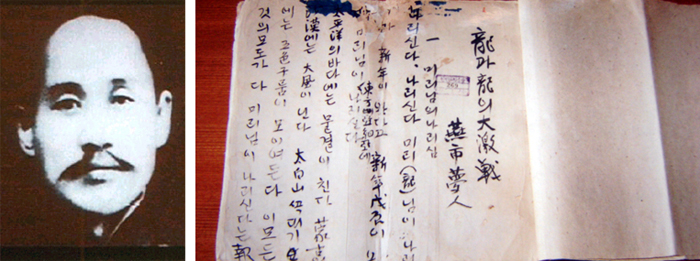 龍과 龍의 大激戰
燕市夢人
一 미리님의나리심
나리신다、나리신다 미리(龍)님이 나리
新年이 왔다고 新年戊辰이
미리님이 나리신다
太平洋의바다에는 물결이 친다 蒙古
沙漠에는 大風이 난다 太白山 꼭대기
에는 五色구름이 모여든다 이모든
것의모도가 다 미리님이 나리신다는 報